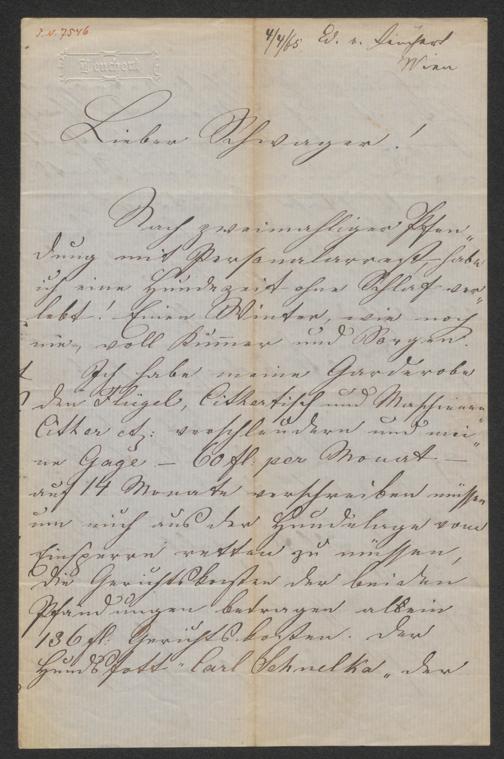 I. N. 7546
4/4/65 Ed. v.
Wien
Teuchert
Lieber Schwager!
Nach zweimahliger Pfän„
dung mit Personalarrest habe
ich eine Hundezeit ohne Schlaf ver„
lebt! Einen Winter, wie noch
nie, voll Kum̄er und Sorgen.
Ich habe meine Garderobe
den Flügel, Cithertisch und Maschinen
Cither etz: verschleudern und mei„
ne Gage – 60 fl: per Monat –
auf 14 Monate verschreiben müssen
um mich aus der Hundslage vom
Einsperren retten zu müssen,
die Gerichtskosten der beiden
Pfändungen betragen allein
136 fl: Gerichtskosten. Der
Hundsfott "Carl Schnelka„ der